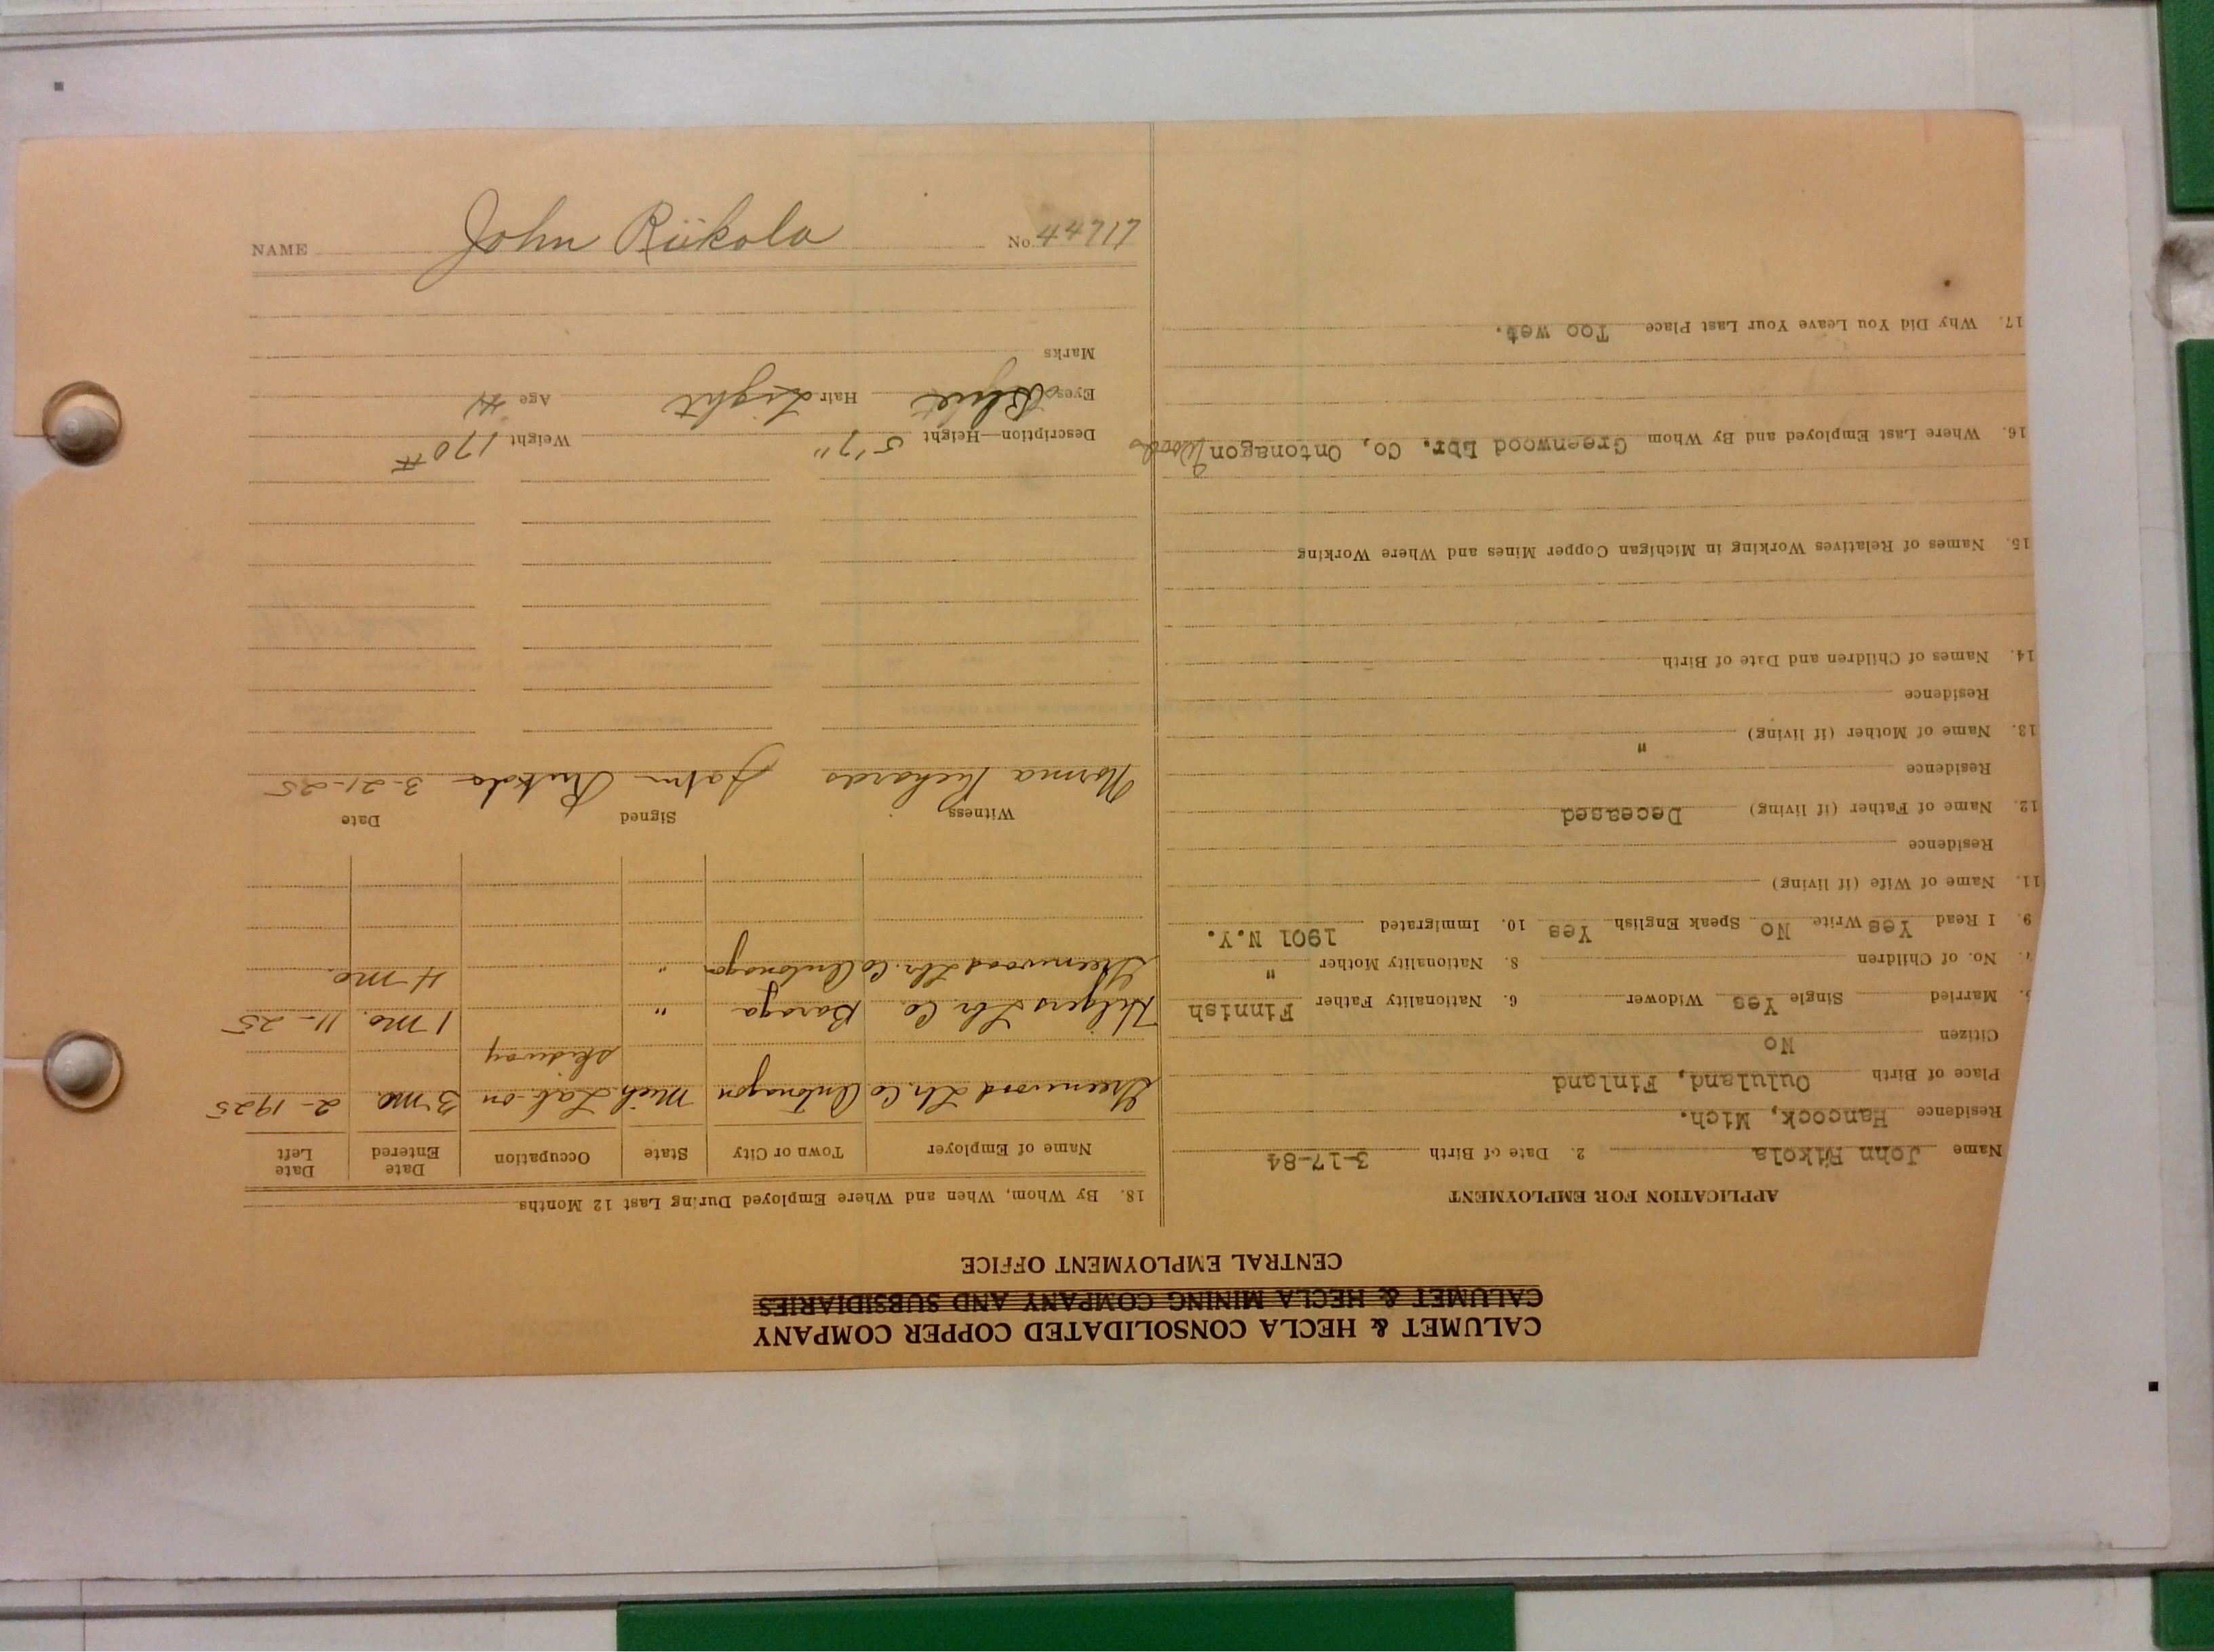 CALUMET & HECLA CONSOLIDATED COPPER COMPANY
CALUMET & HECLA MINING COMPANY AND SUBSIDIARIES
CENTRAL EMPLOYMENT OFFICE
APPLICATION FOR EMPLOYMENT
Name John Riikola 2. Date of Birth 3-17-84
Residence Hancock, Mich.
Place of Birth Oululand, Finland
Citizen No
5. Married Single Yes Widower 6. Nationality Father Finnish
7. No. of Children 8. Nationality Mother "
9. I Read Yes Write No Speak English Yes 10. Immigrated 1901 N.Y.
11. Name of Wife (if living)
Residence
12. Name of Father (if living) Deceased
Residence
13. Name of Mother (if living) "
Residence
14. Names of Children and Date of Birth
15. Names of Relatives Working in Michigan Copper Mines and Where Working
16. Where Last Employed and By Whom Greenwood Lbr. Co, Ontonagon Woods
17. Why Did You Leave Your Last Place Too wet.
18. By Whom, When and Where Employed During Last 12 Months
Name of Employer Town or City State Occupation Date Entered Date Left
Greenwood Lbr. Co Ontonagon Mich. Lab. on 3 mo. 2-1925
skidway
Hilgers Lbr. Co Baraga " 1 mo. 11-25
Greenwood Lbr. Co Ontonagon " 4 mo.
Witness Signed Date
Norma Richards John Riikola 3-21-25
Description—Height 5'7" Weight 170#
Eyes Blue Hair Light Age 41
Marks
NAME John Riikola No. 44717